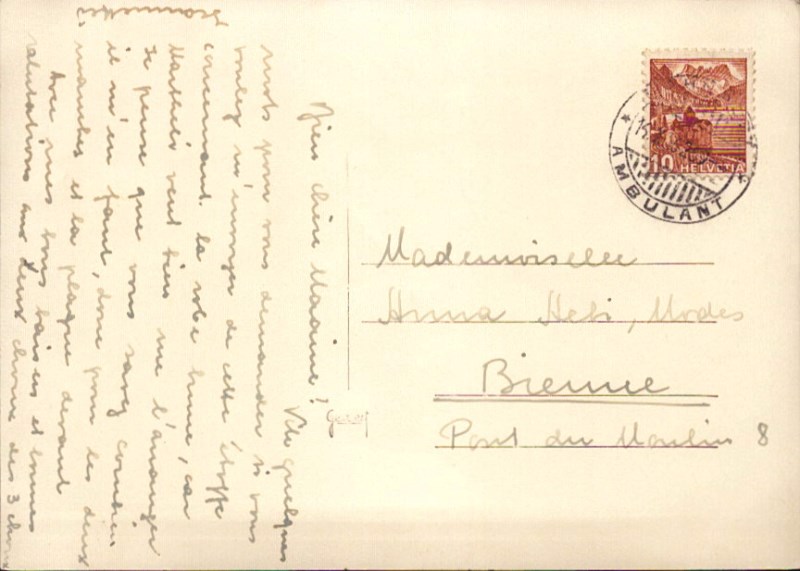 Bien chère Marraine!
Vite quelques
mots pour vous demander si vous
voulez m'envoyer de cette étoffe
concernant la robe brune, car
veut bien me l'arranger
Je pense que vous savez combien
il m'en faut, donc pour les deux
manches et la plaque devant
Avec mes bons baisers et bonnes
salutations aux deux
des 3
10 HELVETIA
AMBULANT
Mademoiselle
Anna Hebi, Modes
Bienne
Pont du Moulin 8